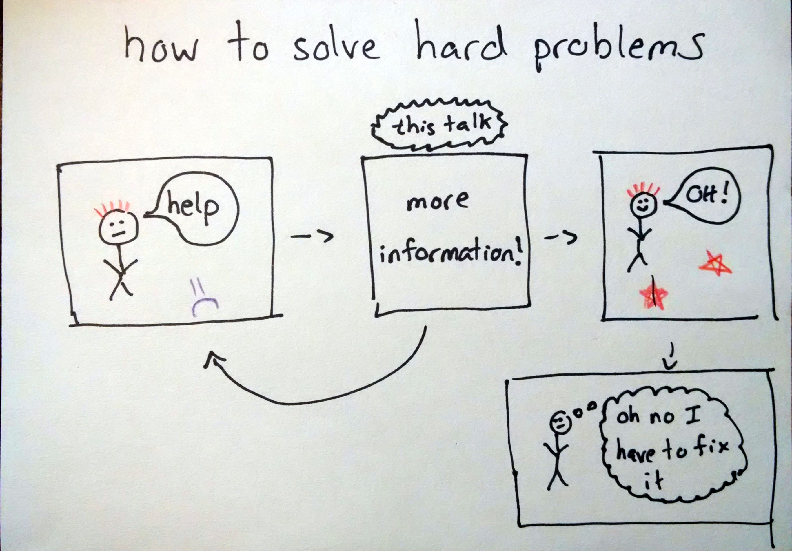 how to solve hard problems
this talk
help
more
information!
OH!
oh no I
have to fix
it